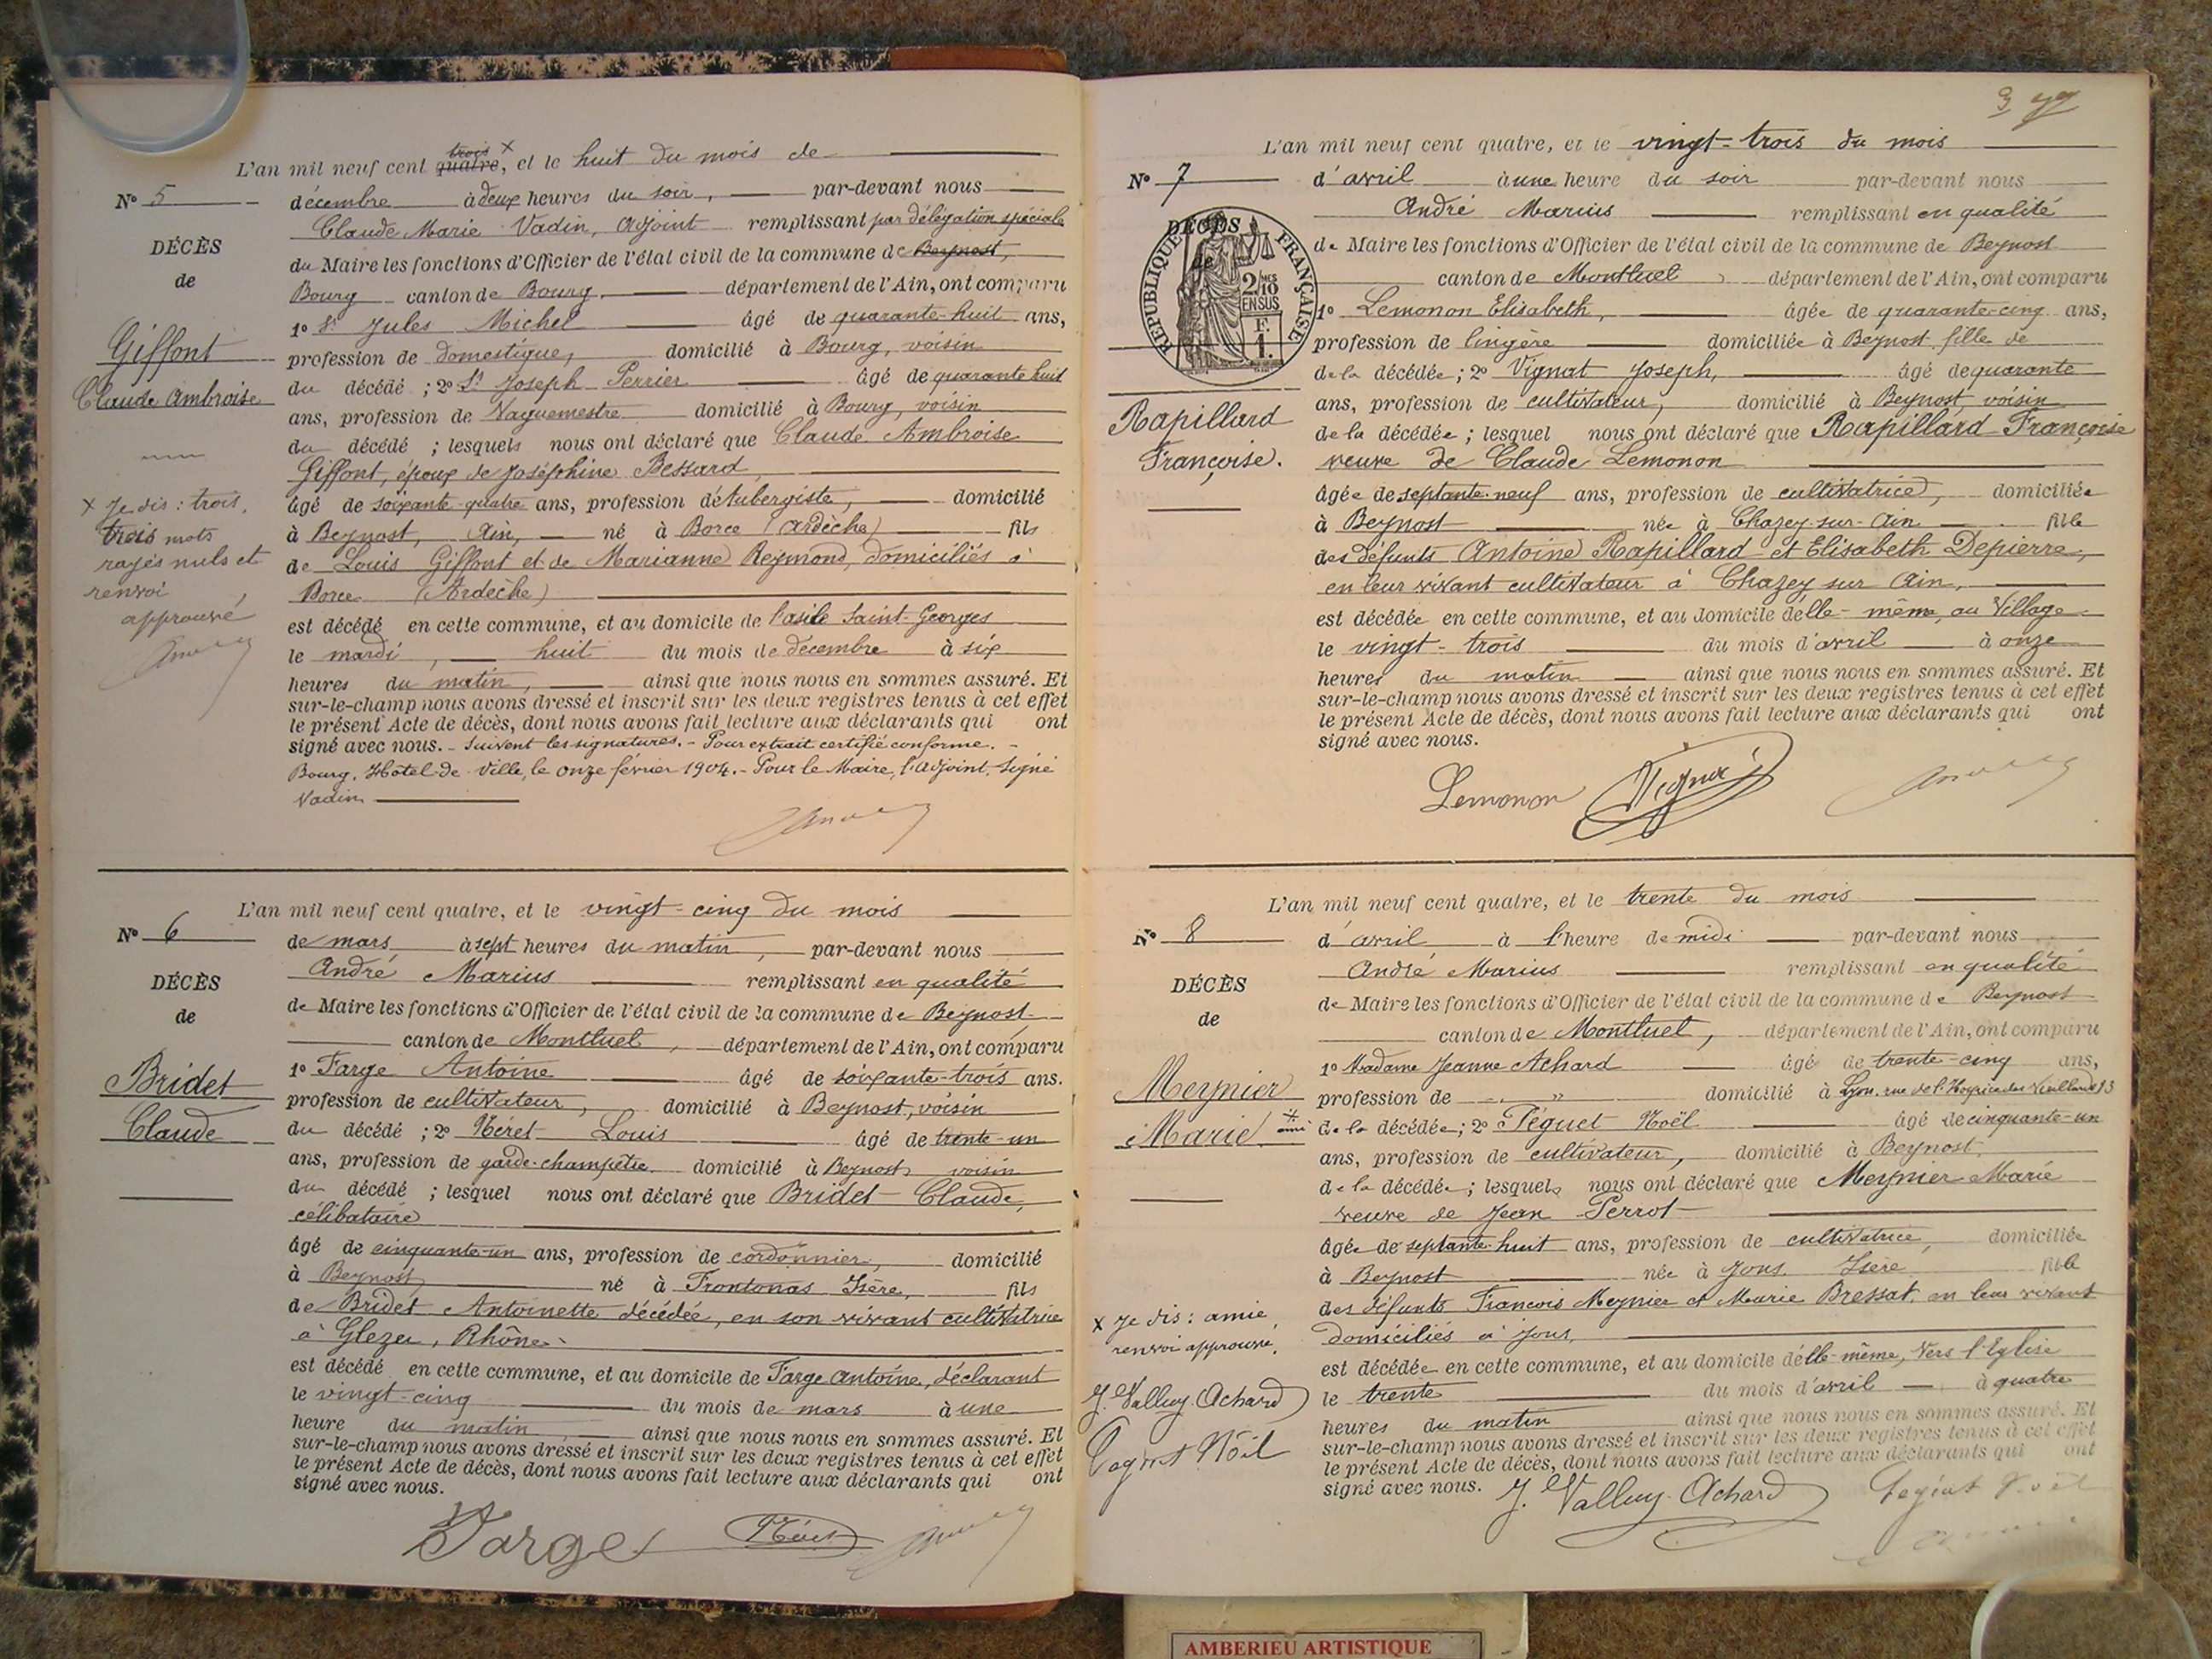 L'an mil neuf cent quatre, trois × et le huit du mois de
N° 5
décembre à deux heures du soir, par-devant nous
Claude Marie Vadin, Adjoint remplissant par délégation spéciale
DÉCÈS
du Maire les fonctions d'Officier de l'état civil de la commune de Beynost,
de
Bourg canton de Bourg, département de l'Ain, ont comparu
1° Sr Jules Michel âgé de quarante-huit ans,
Giffont
profession de domestique, domicilié à Bourg, voisin
du décédé ; 2° Sr Joseph Perrier âgé de quarante huit
Claude Ambroise
ans, profession de Vaguemestre domicilié à Bourg, voisin
du décédé ; lesquels nous ont déclaré que Claude Ambroise
Giffont, époux de Joséphine Bessard,
× Je dis : trois,
trois mots
rayés nuls et
renvoi
approuvé
âgé de soixante-quatre ans, profession d'Aubergiste, domicilié
à Beynost, Ain, né à Borce (Ardèche) fils
de Louis Giffont et de Marianne Reymond, domiciliés à
Borce (Ardèche)
est décédé en cette commune, et au domicile de l'asile Saint-Georges
le mardi, huit du mois de décembre à six
heures du matin, ainsi que nous nous en sommes assuré. Et
sur-le-champ nous avons dressé et inscrit sur les deux registres tenus à cet effet
le présent Acte de décès, dont nous avons fait lecture aux déclarants qui ont
signé avec nous. - Suivent les signatures. - Pour extrait certifié conforme. -
Bourg, Hôtel-de-Ville, le onze février 1904. - Pour le Maire, l'adjoint, signé
Vadin
L'an mil neuf cent quatre, et le vingt-cinq du mois
N° 6
de mars à sept heures du matin, par-devant nous
André Marius remplissant en qualité
DÉCÈS
de Maire les fonctions d'Officier de l'état civil de la commune de Beynost
de
canton de Montluel, département de l'Ain, ont comparu
1° Farge Antoine âgé de soixante-trois ans.
Bridet
profession de cultivateur, domicilié à Beynost, voisin
Claude
du décédé ; 2° Néret Louis âgé de trente-un
ans, profession de garde-champêtre domicilié à Beynost, voisin
du décédé ; lesquel nous ont déclaré que Bridet Claude,
célibataire
âgé de cinquante-un ans, profession de cordonnier, domicilié
à Beynost, né à Frontonas Isère, fils
de Bridet Antoinette décédée, en son vivant cultivatrice
à Glezer, Rhône
est décédé en cette commune, et au domicile de Farge Antoine, déclarant
le vingt-cinq du mois de mars à une
heure du matin, ainsi que nous nous en sommes assuré. Et
sur-le-champ nous avons dressé et inscrit sur les deux registres tenus à cet effet
le présent Acte de décès, dont nous avons fait lecture aux déclarants qui ont
signé avec nous.
Farge Néret
3
L'an mil neuf cent quatre, et le vingt-trois du mois
N° 7
d'avril à une heure du soir par-devant nous
André Marius remplissant en qualité
DÉCÈS
de
RÉPUBLIQUE FRANÇAISE
2/10 MES
EN SUS
F.
1.
de Maire les fonctions d'Officier de l'état civil de la commune de Beynost
canton de Montluel, département de l'Ain, ont comparu
1° Lemonon Elisabeth, âgée de quarante-cinq ans,
profession de lingère domiciliée à Beynost fille de
de la décédée ; 2° Vignat Joseph, âgé de quarante
Rapillard
Françoise.
ans, profession de cultivateur, domicilié à Beynost, voisin
de la décédée ; lesquel nous ont déclaré que Rapillard Françoise
veuve de Claude Lemonon
âgée de septante-neuf ans, profession de cultivatrice, domiciliée
à Beynost née à Chazey-sur-Ain fille
des défunts Antoine Rapillard et Elisabeth Depierre,
en leur vivant cultivateur à Chazey sur Ain,
est décédée en cette commune, et au domicile d'elle-même, au Village
le vingt-trois du mois d'avril à onze
heures du matin ainsi que nous nous en sommes assuré. Et
sur-le-champ nous avons dressé et inscrit sur les deux registres tenus à cet effet
le présent Acte de décès, dont nous avons fait lecture aux déclarants qui ont
signé avec nous.
Lemonon Vignat J
L'an mil neuf cent quatre, et le trente du mois
N° 8
d'avril à l'heure de midi par-devant nous
André Marius remplissant en qualité
DÉCÈS
de Maire les fonctions d'Officier de l'état civil de la commune de Beynost
de
canton de Montluel, département de l'Ain, ont comparu
1° Madame Jeanne Achard âgé de trente-cinq ans,
Meynier
Marie
profession de " domicilié à Lyon, rue de l'Hospice des Vieillards 13
× amie de la décédée ; 2° Péguet Noël âgé de cinquante-un
ans, profession de cultivateur, domicilié à Beynost,
de la décédée ; lesquels nous ont déclaré que Meynier Marie
veuve de Jean Perrot
âgée de septante-huit ans, profession de cultivatrice, domiciliée
à Beynost née à Jons Isère fille
des défunts François Meynier et Marie Bressat, en leur vivant
× Je dis : amie,
renvoi approuvé,
domiciliés à Jons,
est décédée en cette commune, et au domicile d'elle-même, vers l'Eglise
J. Valluy-Achard
le trente du mois d'avril à quatre
heures du matin ainsi que nous nous en sommes assuré. Et
sur-le-champ nous avons dressé et inscrit sur les deux registres tenus à cet effet
le présent Acte de décès, dont nous avons fait lecture aux déclarants qui ont
signé avec nous. J. Valluy-Achard
AMBERIEU ARTISTIQUE